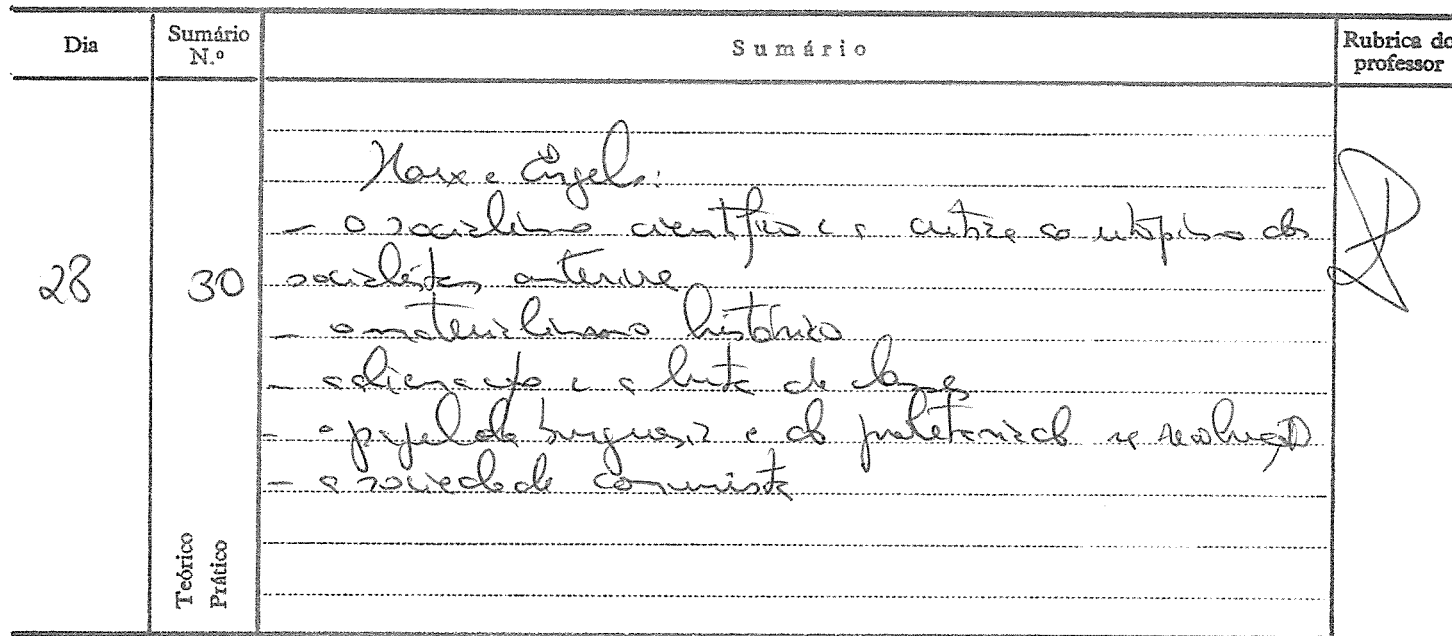 Dia
Sumário N.º
Sumário
Rubrica do professor
28
30
Marx e Engels:
- o socialismo científico e a crítica ao utopismo dos
socialistas anteriores
- o materialismo histórico
- a alienação e a luta de classes
- o papel da burguesia e do proletariado na revolução
- a sociedade comunista
Teórico
Prático